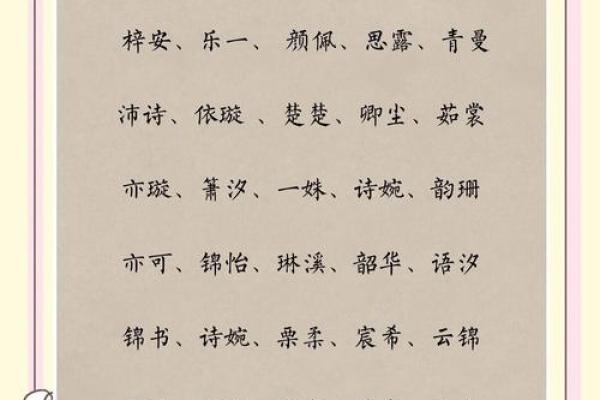 梓安、乐一、 颜佩、思露、青曼
沛诗、依璇 、楚楚、卿尘、茹裳
亦璇、箫汐、一姝、诗婉、韵珊
亦可、锦怡、琳溪、韶华、语汐
锦书、诗婉、栗柔、宸希、云锦